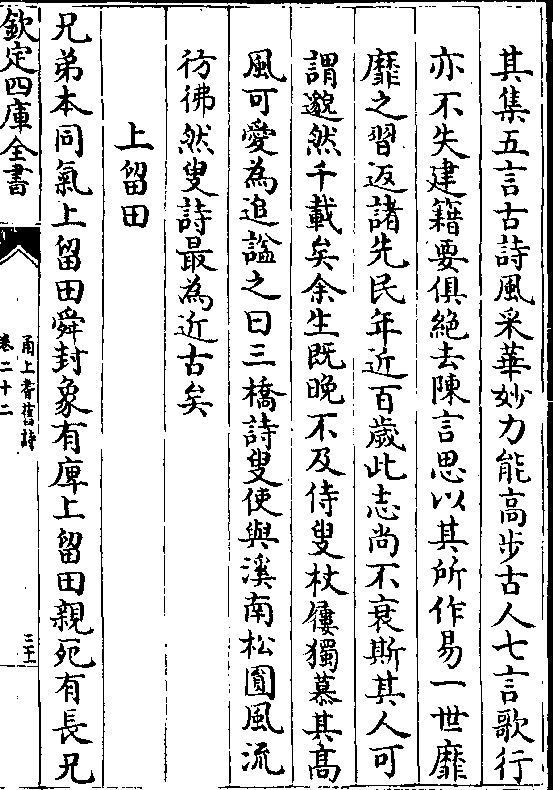 其集五言古詩風采華妙力能高步古人七言歌行
亦不失建籍要俱絶去陳言思以其所作易一世靡
靡之習返諸先民年近百歲此志尚不衰斯其人可
謂邈然千載矣余生既晚不及侍叟杖屨獨慕其髙
風可愛為追諡之曰三橋詩叟使與溪南松圓風流
彷彿然叟詩最為近古矣
上留田
兄弟本同氣上留田舜封象有庳上留田親死有長兄
欽定四庫全書
甬上耆舊詩
卷二十二
三十一